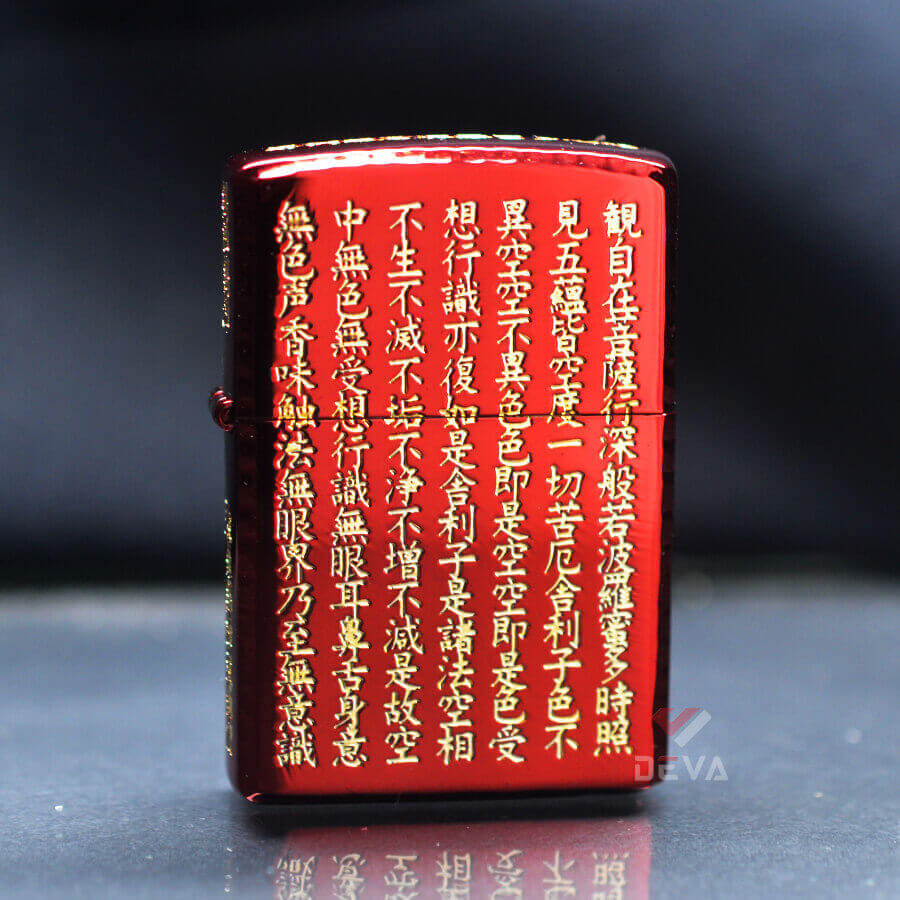 観自在菩薩行深般若波羅蜜多時照
見五蘊皆空度一切苦厄舎利子色不
異空空不異色色即是空空即是色受
想行識亦復如是舎利子是諸法空相
不生不滅不垢不浄不増不減是故空
中無色無受想行識無眼耳鼻舌身意
無色声香味触法無眼界乃至無意識
DEVA